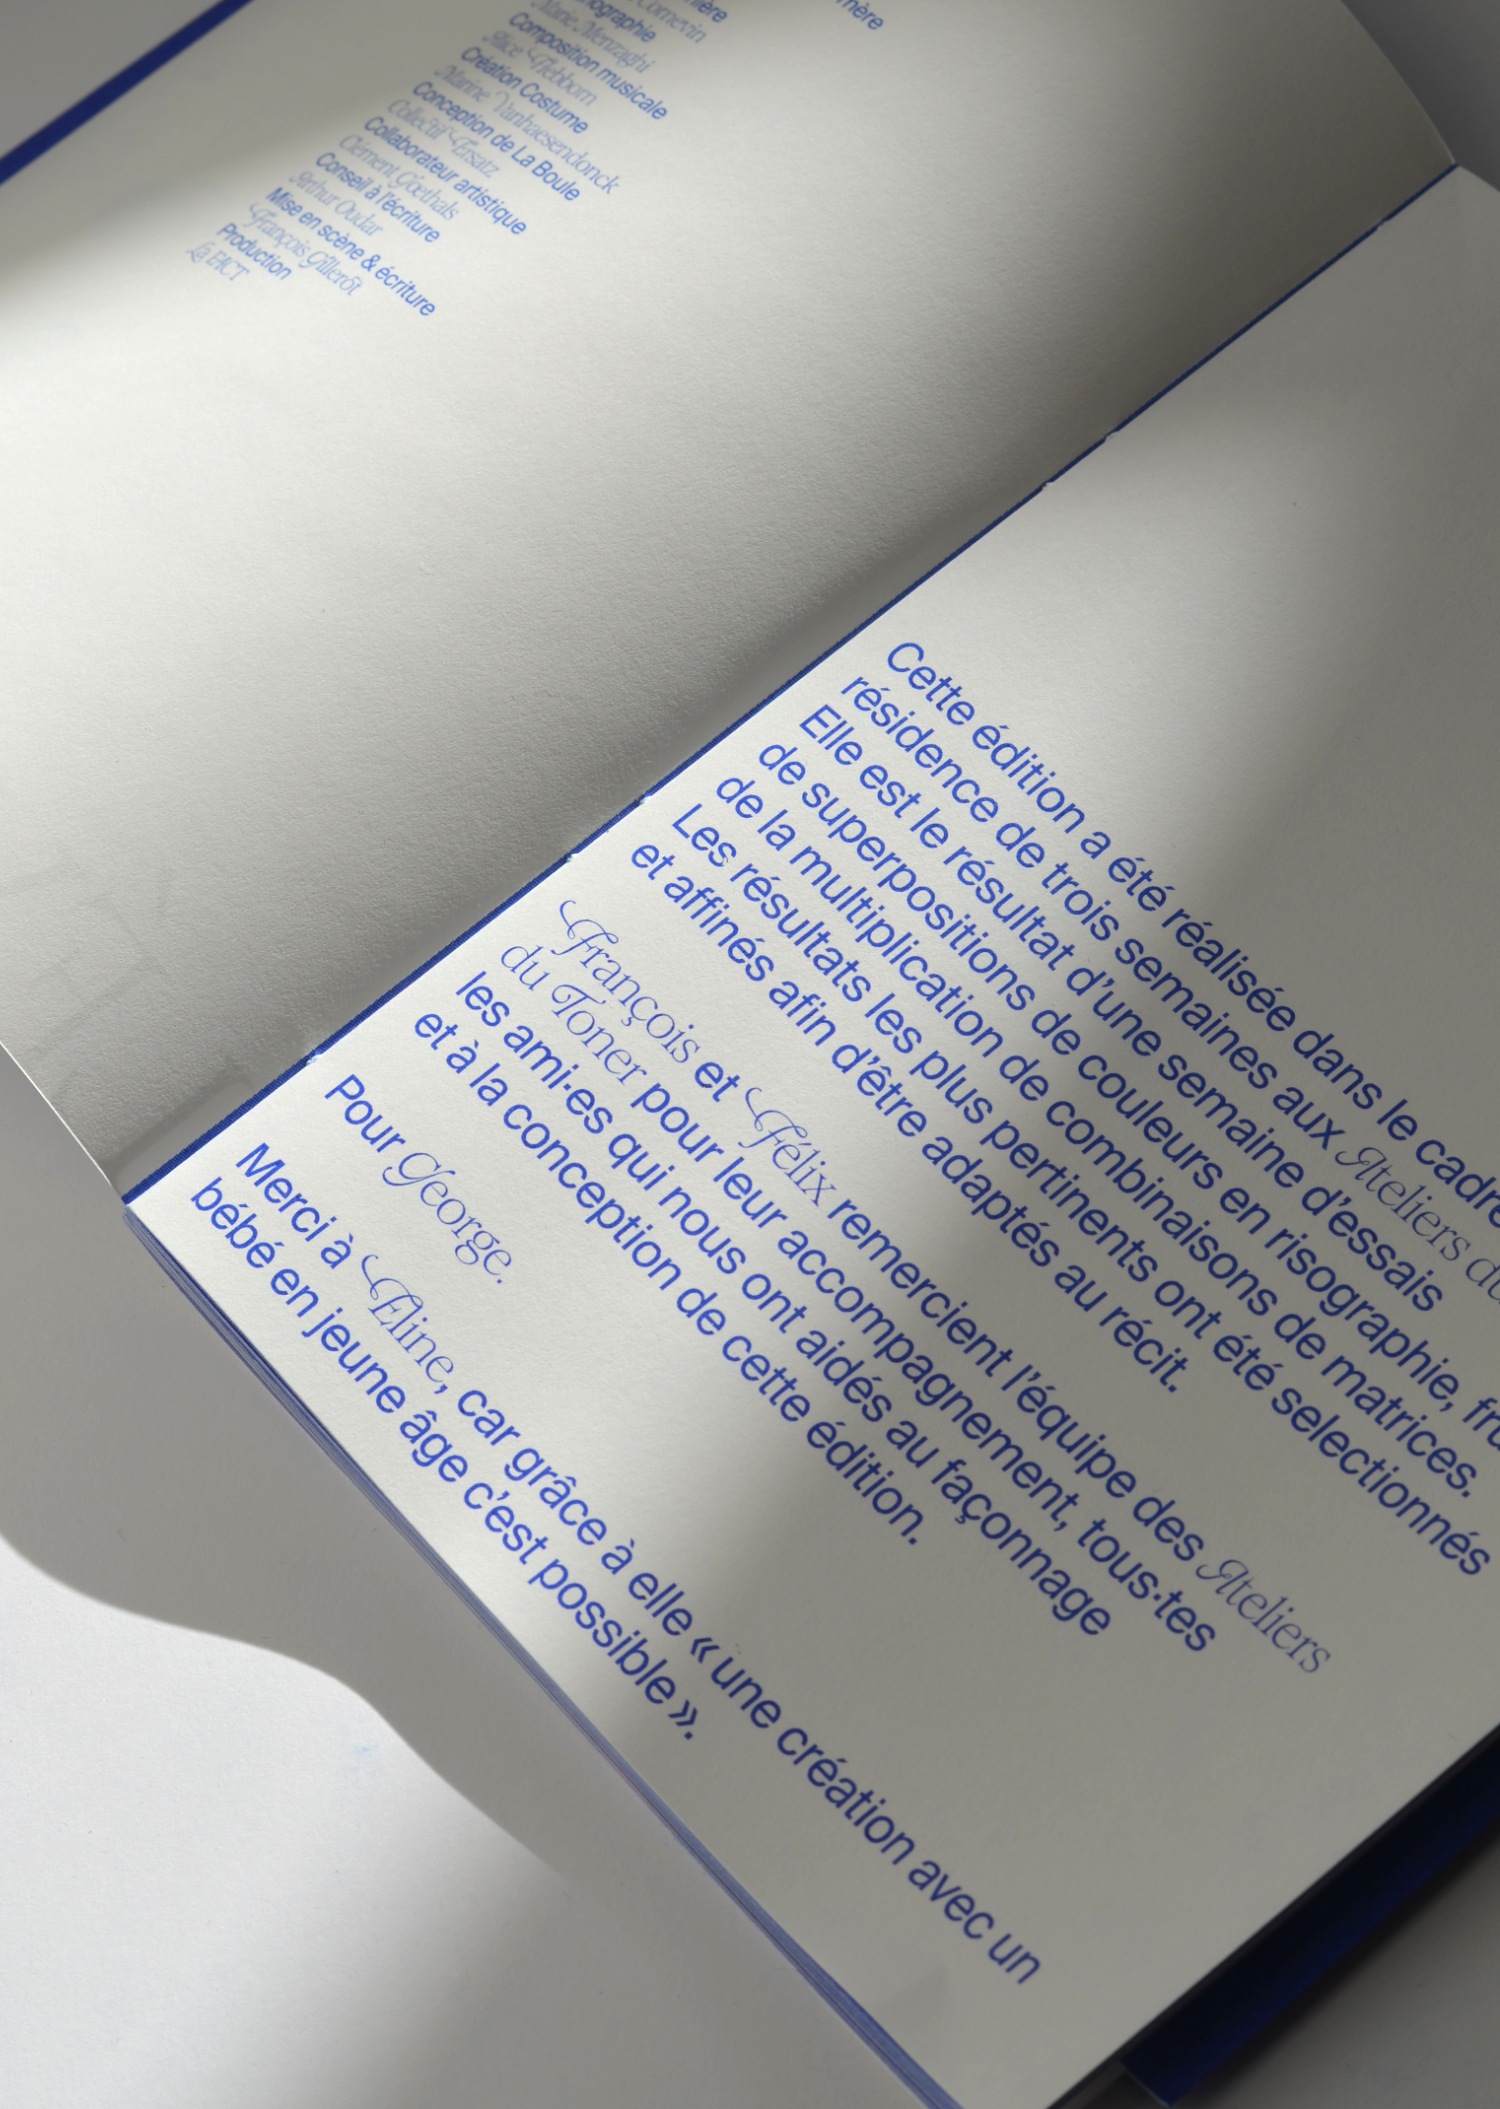 Composition musicale
Alice Hebborn
Création Costume
Marine Vanhaesendonck
Conception de La Boule
Collectif Ersatz
Collaborateur artistique
Clément Goethals
Conseil à l'écriture
Arthur Oudar
Mise en scène & écriture
François Gillerot
Production
La FACT
Cette édition a été réalisée dans le cadre
résidence de trois semaines aux Ateliers du
Elle est le résultat d'une semaine d'essais
de superpositions de couleurs en risographie,
de la multiplication de combinaisons de matrices.
Les résultats les plus pertinents ont été selectionnés
et affinés afin d'être adaptés au récit.
François et Félix remercient l'équipe des Ateliers
du Toner pour leur accompagnement, tous·tes
les ami·es qui nous ont aidés au façonnage
et à la conception de cette édition.
Pour George.
Merci à Eline, car grâce à elle « une création avec un
bébé en jeune âge c'est possible ».